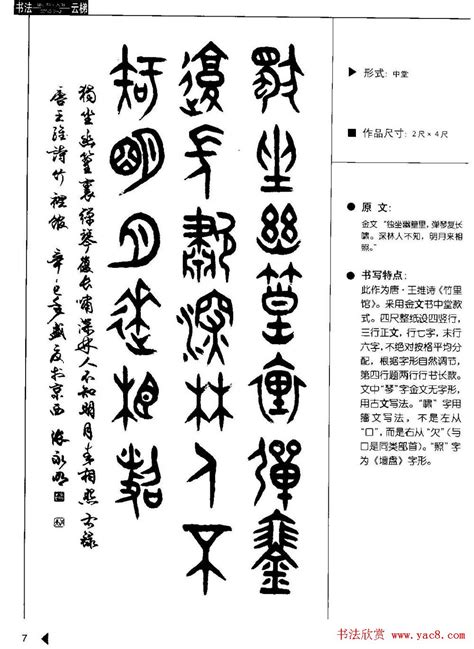 书法 云梯
獨坐幽篁裏彈琴
復長嘯深林人不
知明月來相照
獨坐幽篁裏彈琴復長嘯深林人不知明月來相照右錄
唐王維詩竹裡館 辛巳年盛夏於京西 永明
▶ 形式：中堂
■ 作品尺寸：2尺×4尺
● 原文：
金文“独坐幽篁里，弹琴复长
啸。深林人不知，明月来相
照。”
● 书写特点：
此作为唐·王维诗《竹里
馆》。采用金文书中堂款
式。四尺整纸设四竖行，
三行正文，行七字，末行
六字，不绝对按格平均分
配，根据字形自然调节，
第四行题两行行书长款。
文中“琴”字金文无字形，
用古文写法。“啸”字用
籀文写法，不是左从
“口”，而是右从“欠”（与
口是同类部首）。“照”字
为《墙盘》字形。
7
书法欣赏 www.yac8.com